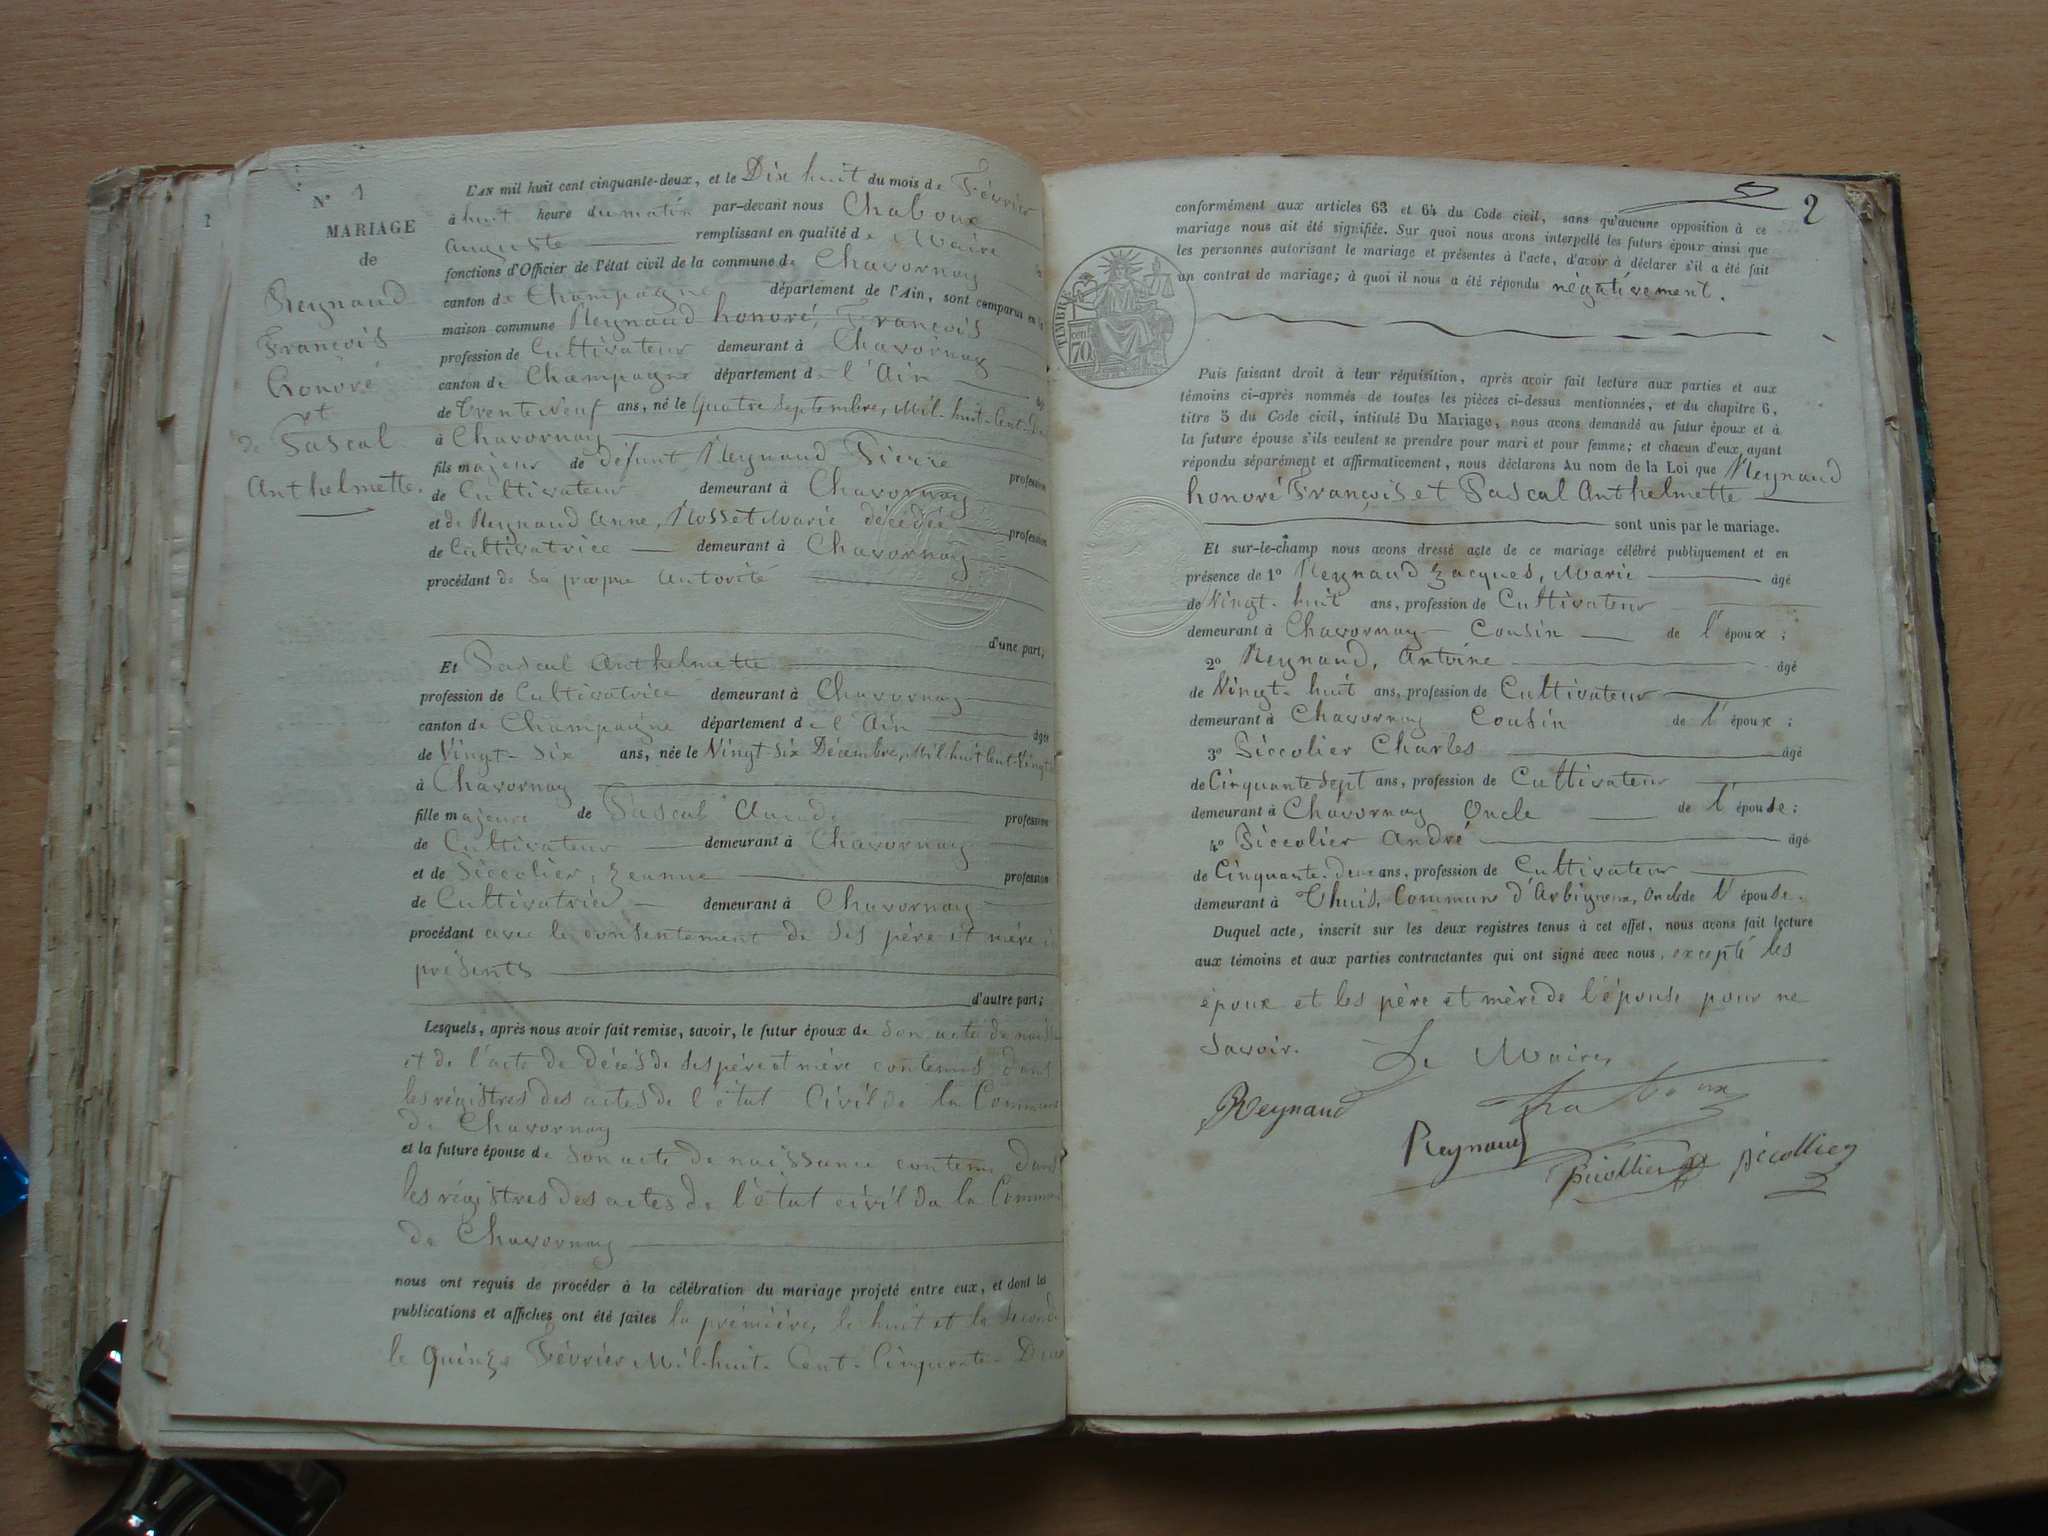 1
N° 1
MARIAGE
de
Reynaud
François
honoré
et
de Pascal
Anthelmette.
L'AN mil huit cent cinquante-deux, et le Dix huit du mois de Février
à huit heure du matin par-devant nous Chaboux
Auguste remplissant en qualité de Maire
fonctions d'Officier de l'état civil de la commune de Chavornay
canton de Champagne département de l'Ain, sont comparus en la
maison commune Reynaud honoré, François
profession de Cultivateur demeurant à Chavornay
canton de Champagne département de l'Ain
de Trente Neuf ans, né le Quatre Septembre, Mil-huit-Cent-
à Chavornay
fils majeur de défunt Reynaud Pierre profession
de Cultivateur demeurant à Chavornay
et de Reynaud Anne, Rosset Marie décédée profession
de Cultivatrice demeurant à Chavornay
procédant de sa propre Autorité
d'une part;
Et Pascal Anthelmette
profession de Cultivatrice demeurant à Chavornay
canton de Champagne département de l'Ain âgée
de Vingt-Six ans, née le Vingt-Six Décembre, Mil-huit-Cent-Vingt
à Chavornay
fille majeure de Pascal Claude profession
de Cultivateur demeurant à Chavornay
et de Piccolier, Jeanne profession
de Cultivatrice demeurant à Chavornay
procédant avec le consentement de ses père et mère
présents
d'autre part;
Lesquels, après nous avoir fait remise, savoir, le futur époux de son acte de
et de l'acte de Décès de ses père et mère contenus dans
les régistres des actes de l'état Civil de la Commune
de Chavornay
et la future épouse de son acte de naissance contenu dans
les régistres des actes de l'état civil da la Commune
de Chavornay
nous ont requis de procéder à la célébration du mariage projeté entre eux, et dont les
publications et affiches ont été faites la première, le huit et la Seconde
le Quinze Février Mil-huit-Cent-Cinquante-Deux
2
conformément aux articles 63 et 64 du Code civil, sans qu'aucune opposition à ce
mariage nous ait été signifiée. Sur quoi nous avons interpellé les futurs époux ainsi que
les personnes autorisant le mariage et présentes à l'acte, d'avoir à déclarer s'il a été fait
un contrat de mariage; à quoi il nous a été répondu négativement.
TIMBRE
70
Puis faisant droit à leur réquisition, après avoir fait lecture aux parties et aux
témoins ci-après nommés de toutes les pièces ci-dessus mentionnées, et du chapitre 6,
titre 5 du Code civil, intitulé Du Mariage, nous avons demandé au futur époux et à
la future épouse s'ils veulent se prendre pour mari et pour femme; et chacun d'eux ayant
répondu séparément et affirmativement, nous déclarons Au nom de la Loi que Reynaud
honoré François et Pascal Anthelmette
sont unis par le mariage.
Et sur-le-champ nous avons dressé acte de ce mariage célébré publiquement et en
présence de 1° Reynaud Jacques, Marie âgé
de Vingt-huit ans, profession de Cultivateur
demeurant à Chavornay Cousin de l'époux;
2° Reynaud, Antoine âgé
de Vingt-huit ans, profession de Cultivateur
demeurant à Chavornay Cousin de l'époux;
3° Piccolier Charles âgé
de Cinquante Sept ans, profession de Cultivateur
demeurant à Chavornay Oncle de l'épouse;
4° Piccolier André âgé
de Cinquante-deux ans, profession de Cultivateur
demeurant à Thuis, Commune d'Arbignieu, Oncle de l'épouse.
Duquel acte, inscrit sur les deux registres tenus à cet effet, nous avons fait lecture
aux témoins et aux parties contractantes qui ont signé avec nous, excepté les
époux et les père et mère de l'épouse pour ne
savoir.
Le Maire,
Reynaud
Chaboux
Reynaud
Picollier
picollier